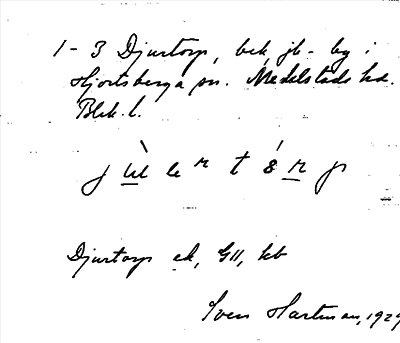 1-3 Djurtorp, bek jb- by i
Hjortsberga sn. Medelstads hd.
Blek. l.
Djurtorp ek, GII, kb
Sven Hartman, 1929